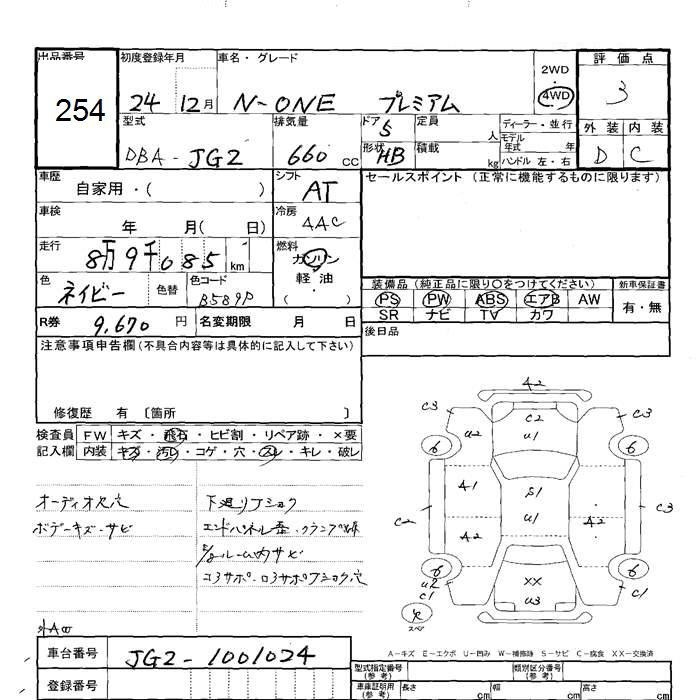 出品番号 初度登録年月 車名・グレード 2WD 評価点
254 24 12月 N-ONE プレミアム 4WD 3
型式 排気量 ドア 定員 ディーラー・並行 外装 内装
DBA-JG2 660 cc 5 人 モデル年式 年 D C
形状 HB 積載 kg ハンドル 左・右
車歴 自家用・( ) シフト AT セールスポイント (正常に機能するものに限ります)
車検 年 月( 日) 冷房 AAC
走行 8万9千085 km 燃料 ガソリン 軽油 ( )
色 ネイビー 色替 色コード B589P
装備品 (純正品に限り○をつけてください) 新車保証書
PS PW ABS エアB AW 有・無
SR ナビ TV カワ
R券 9,670 円 名変期限 月 日 後日品
注意事項申告欄(不具合内容等は具体的に記入して下さい)
修復歴 有 〔箇所 〕
検査員 FW キズ・飛石・ヒビ割・リペア跡・×要
記入欄 内装 キズ・汚レ・コゲ・穴・スレ・キレ・破レ
オーディオ欠穴 下廻りフショク
ボデーキズ・サビ
A2
C3 C2 C3
U2 U1
6 6
A1 S1 C3
C2 U1 A2
A2
6 XX 6
U2 C1 U3 C1
スペア
A-キズ E-エクボ U-凹み W-補修跡 S-サビ C-腐食 XX-交換済
車台番号 JG2-1001024
登録番号
型式指定番号(参考) 類別区分番号(参考)
車庫証明用(参考) 長さ cm 幅 cm 高さ cm